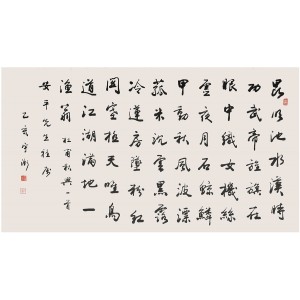 昆明池水漢時
功武帝旌旗在
眼中織女機絲
虛夜月石鯨鱗
甲動秋風波漂
菰米沉雲黑露
冷蓮房墜粉紅
關塞極天唯鳥
道江湖滿地一
漁翁 杜甫秋興一首
安平先生雅屬
乙亥